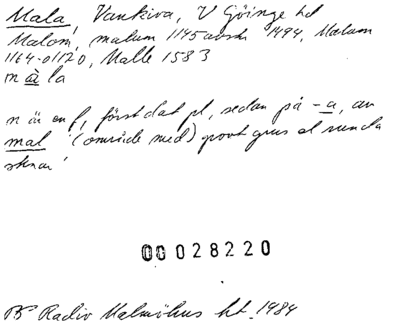 Mala, Vankiva, V Göinge hd
Malom, malum 1145 avskr 1494, Malum
1164-o1120, Malle 1583
màla
n är en f, först dat pl, sedan på -a, av
mal '(område med) grovt grus el runda
stenar'
00028220
Radio Malmöhus ht 1984